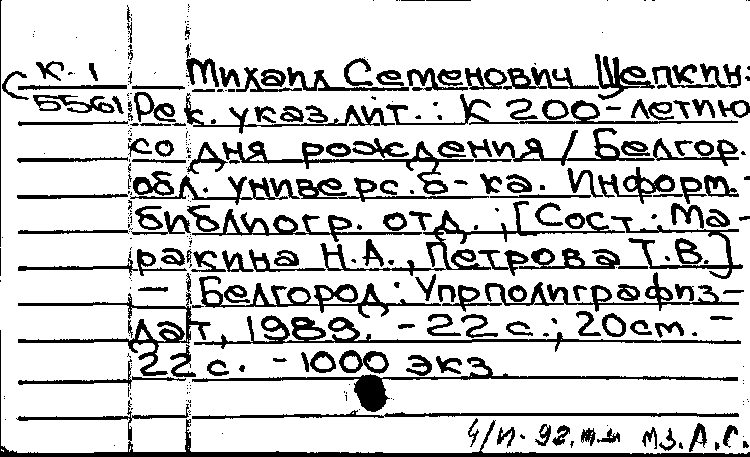 С К-1
5561
Михаил Семенович Щепкин:
Рек. указ. лит.: К 200-летию
со дня рождения / Белгор.
обл. универс. б-ка. Информ.-
библиогр. отд.; [Сост.: Ма-
ракина Н.А., Петрова Т.В.]
– Белгород: Упрполиграфиз-
дат, 1989. – 22 с.; 20 см. –
22 с. – 1000 экз.